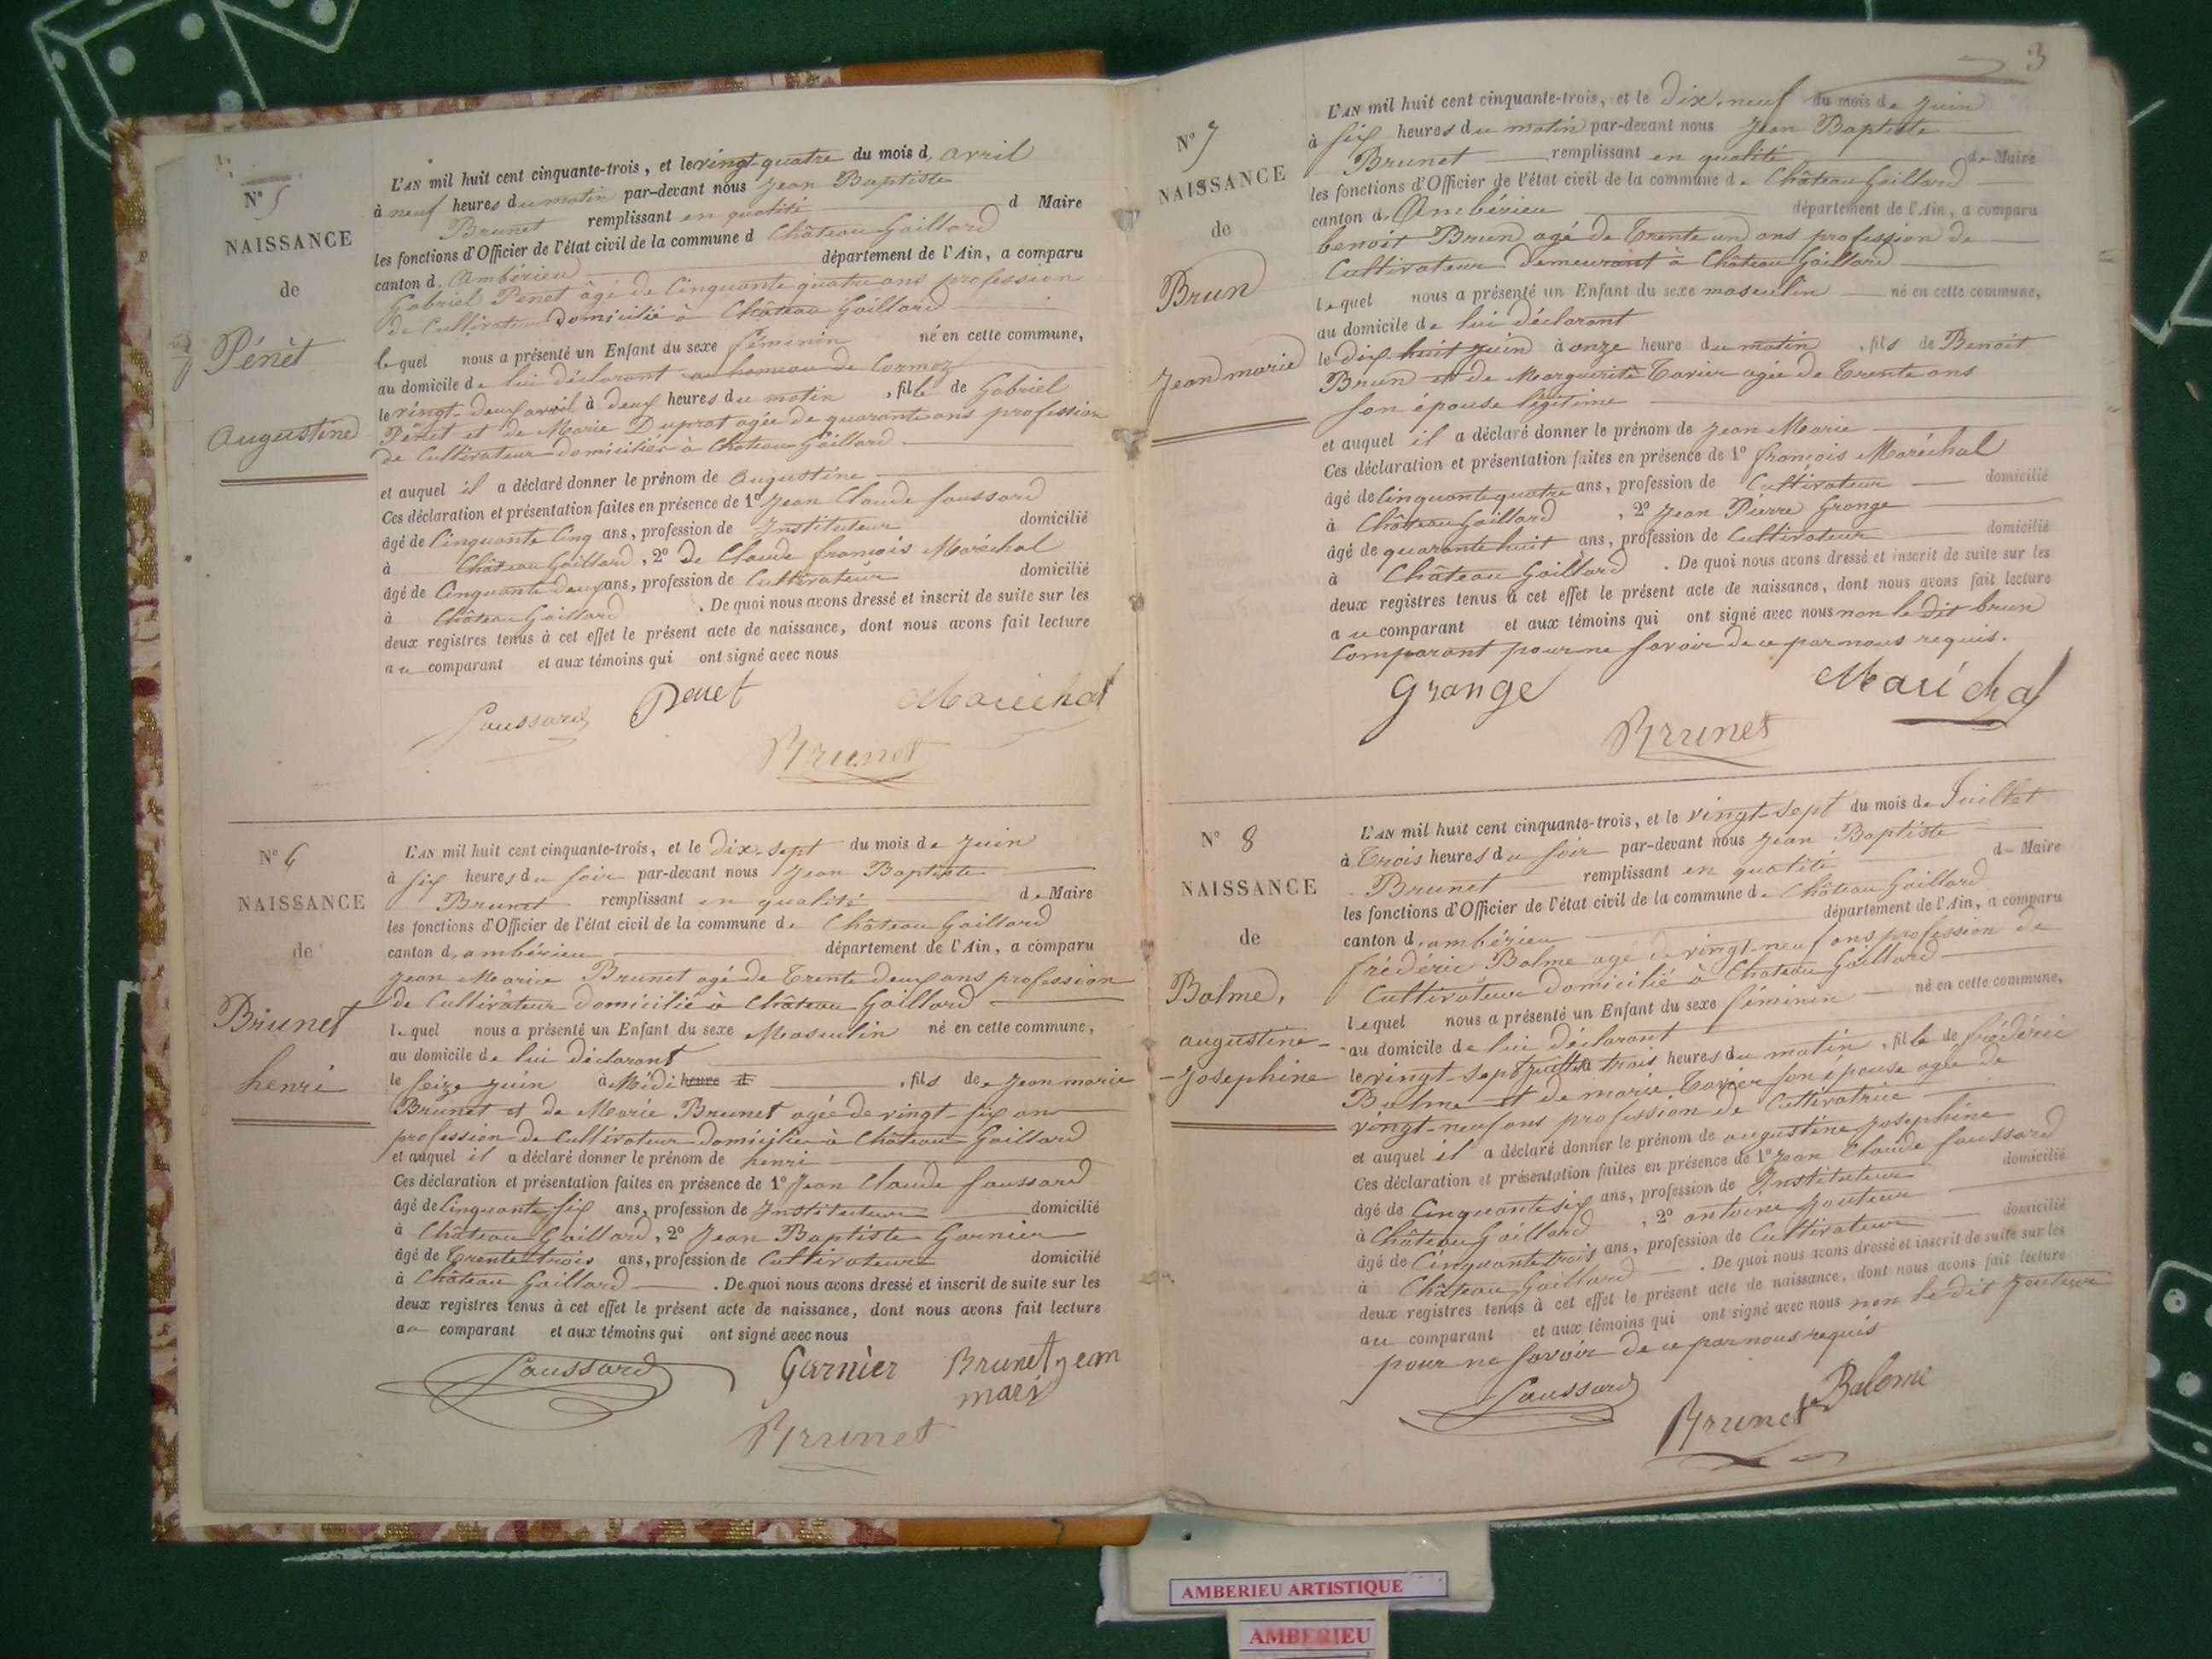 N° 5
NAISSANCE
de
Pénêt
Augustine
L'AN mil huit cent cinquante-trois, et le vingt-quatre du mois d. avril
à neuf heures du matin par-devant nous Jean Baptiste
Brunet remplissant en qualité d Maire
les fonctions d'Officier de l'état civil de la commune d Château Gaillard
canton d. Ambérieu département de l'Ain, a comparu
Gabriel Penet âgé de Cinquante quatre ans profession
de Cultivateur domicilié à Château Gaillard
lequel nous a présenté un Enfant du sexe féminin né en cette commune,
au domicile de lui déclarant au hameau de Cormoz
le vingt-deux avril à deux heures du matin, fille de Gabriel
Pénet et de Marie Duprat agée de quarante ans profession
de Cultivateur domiciliés à Château Gaillard
et auquel il a déclaré donner le prénom de Augustine
Ces déclaration et présentation faites en présence de 1° Jean Claude Saussard
âgé de Cinquante Cinq ans, profession de Instituteur domicilié
à Château Gaillard, 2° de Claude françois Maréchal
âgé de Cinquante deux ans, profession de Cultivateur domicilié
à Château Gaillard. De quoi nous avons dressé et inscrit de suite sur les
deux registres tenus à cet effet le présent acte de naissance, dont nous avons fait lecture
au comparant et aux témoins qui ont signé avec nous
Saussard Penet Maréchal
Brunet
N° 6
NAISSANCE
de
Brunet
henri
L'AN mil huit cent cinquante-trois, et le dix-sept du mois de Juin
à six heures du soir par-devant nous Jean Baptiste
Brunet remplissant en qualité de Maire
les fonctions d'Officier de l'état civil de la commune de Château Gaillard
canton d. ambérieu département de l'Ain, a comparu
Jean Marie Brunet agé de Trente deux ans profession
de Cultivateur domicilié à Château Gaillard
lequel nous a présenté un Enfant du sexe Masculin né en cette commune,
au domicile de lui déclarant
le seize Juin à Midi heure d, fils de Jean marie
Brunet et de Marie Brunet agée de vingt-six ans
profession de Cultivateur domiciliée à Château Gaillard
et auquel il a déclaré donner le prénom de henri
Ces déclaration et présentation faites en présence de 1° Jean Claude Saussard
âgé de Cinquante six ans, profession de Instituteur domicilié
à Château Gaillard, 2° Jean Baptiste Garnier
âgé de Trente trois ans, profession de Cultivateur domicilié
à Château Gaillard. De quoi nous avons dressé et inscrit de suite sur les
deux registres tenus à cet effet le présent acte de naissance, dont nous avons fait lecture
au comparant et aux témoins qui ont signé avec nous
Saussard Garnier Brunet jean
mari
Brunet
3
N° 7
NAISSANCE
de
Brun
Jean marie
L'AN mil huit cent cinquante-trois, et le dix-neuf du mois de Juin
à six heures du matin par-devant nous Jean Baptiste
Brunet remplissant en qualité de Maire
les fonctions d'Officier de l'état civil de la commune de Château Gaillard
canton d. Ambérieu département de l'Ain, a comparu
benoit Brun agé de Trente un ans profession de
Cultivateur demeurant à Château Gaillard
lequel nous a présenté un Enfant du sexe masculin né en cette commune,
au domicile de lui déclarant
le dix-huit Juin à onze heure du matin, fils de Benoit
Brun et de Marguerite Tavier agée de Trente ans
son épouse légitime
et auquel il a déclaré donner le prénom de Jean Marie
Ces déclaration et présentation faites en présence de 1° françois Maréchal
âgé de Cinquante quatre ans, profession de Cultivateur domicilié
à Château Gaillard, 2° Jean Pierre Grange
âgé de quarante huit ans, profession de Cultivateur domicilié
à Château Gaillard. De quoi nous avons dressé et inscrit de suite sur les
deux registres tenus à cet effet le présent acte de naissance, dont nous avons fait lecture
au comparant et aux témoins qui ont signé avec nous non le dit brun
Comparant pour ne savoir de ce par nous requis.
Grange Maréchal
Brunet
N° 8
NAISSANCE
de
Balme,
augustine-
-Josephine
L'AN mil huit cent cinquante-trois, et le vingt-sept du mois de Juillet
à Trois heures du soir par-devant nous Jean Baptiste
Brunet remplissant en qualité de Maire
les fonctions d'Officier de l'état civil de la commune de Château Gaillard
canton d. ambérieu département de l'Ain, a comparu
frédéric Balme agé de vingt-neuf ans profession de
Cultivateur domicilié à Chateau Gaillard
lequel nous a présenté un Enfant du sexe féminin né en cette commune,
au domicile de lui déclarant
le vingt-sept Juillet à trois heures du matin, fille de frédéric
Balme et de marie Tavier son épouse agée de
vingt-neuf ans profession de Cultivatrice
et auquel il a déclaré donner le prénom de augustine Josephine
Ces déclaration et présentation faites en présence de 1° Jean Claude Saussard
âgé de Cinquante six ans, profession de Instituteur domicilié
à Château Gaillard, 2° antoine Jouteur
âgé de Cinquante trois ans, profession de Cultivateur domicilié
à Château Gaillard. De quoi nous avons dressé et inscrit de suite sur les
deux registres tenus à cet effet le présent acte de naissance, dont nous avons fait lecture
au comparant et aux témoins qui ont signé avec nous non le dit Jouteur
pour ne savoir de ce par nous requis
Saussard Brunet Balme
AMBERIEU ARTISTIQUE
AMBERIEU